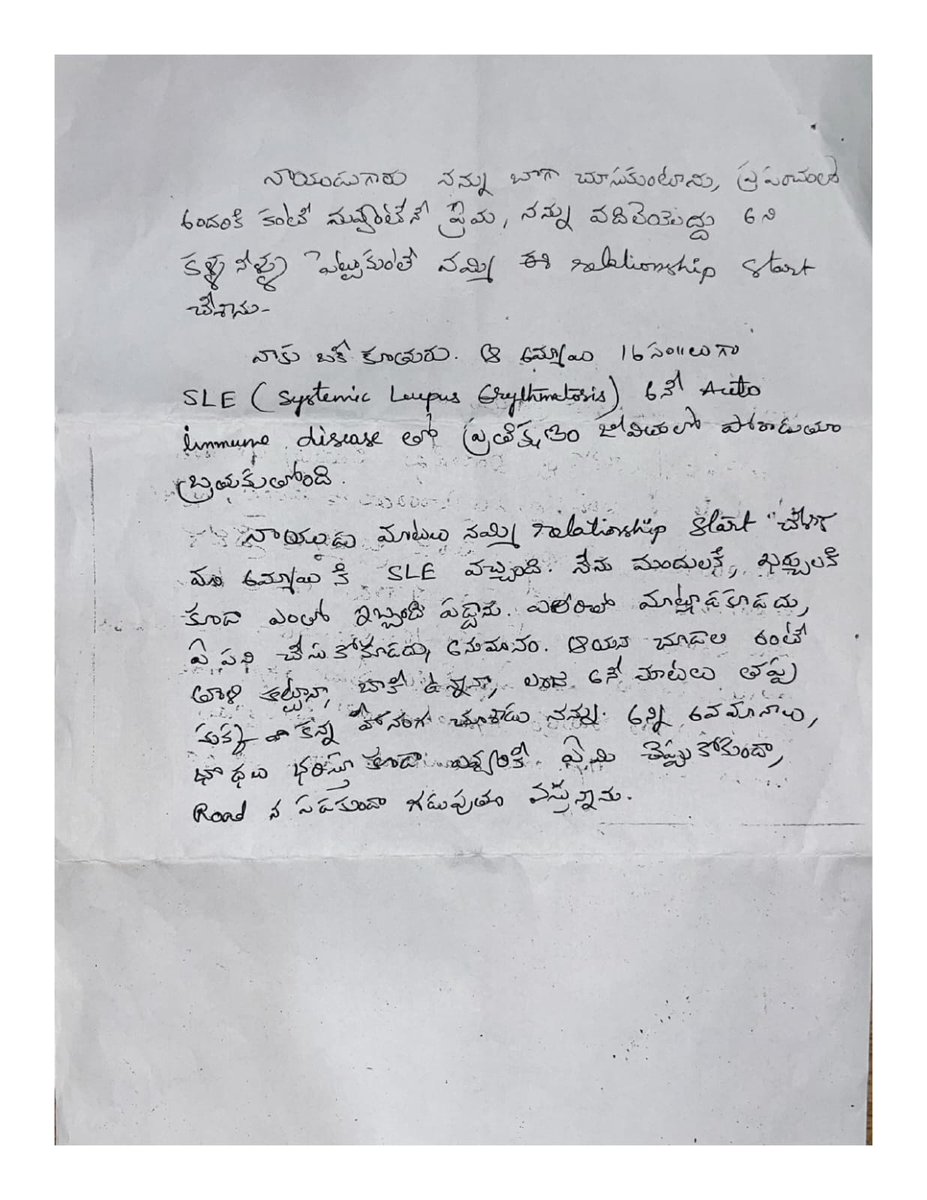 నాయుడుగారు నన్ను బాగా చూసుకుంటాను, ప్రపంచంలో
అందరికి కంటే నువ్వంటేనే ప్రేమ, నన్ను వదిలేయొద్దు అని
కళ్ళ నీళ్ళు పెట్టుకుంటే నమ్మి ఈ relationship start
చేశాను-
నాకు ఒకే కూతురు. ఆ అమ్మాయి 16 సం॥లుగా
SLE (Systemic Leupus Erythmatosis) అనే Auto
immune disease తో ప్రతిక్షణం జీవితంలో పోరాడుతూ
బ్రతుకుతోంది.
నాయుడు మాటలు నమ్మి relationship start చేశాక
మా అమ్మాయి కి SLE వచ్చింది. నేను మందులకే, ఖర్చులకి
కూడా ఎంతో ఇబ్బంది పడ్డాను. ఎవరితో మాట్లాడకూడదు,
ఏ పని చేసుకోకూడదు, అనుమానం. ఆయన చూడాలి అంటే
తాళి కట్టానా, బాకీ ఉన్నానా, లంజ అనే మాటలు తప్ప
కుక్క కన్న హీనంగా చూశాడు నన్ను. అన్ని అవమానాలు,
బాధలు భరిస్తూ కూడా ఎవ్వరికీ ఏమి చెప్పుకోకుండా,
Road న పడకుండా గడుపుతూ వస్తున్నాను.